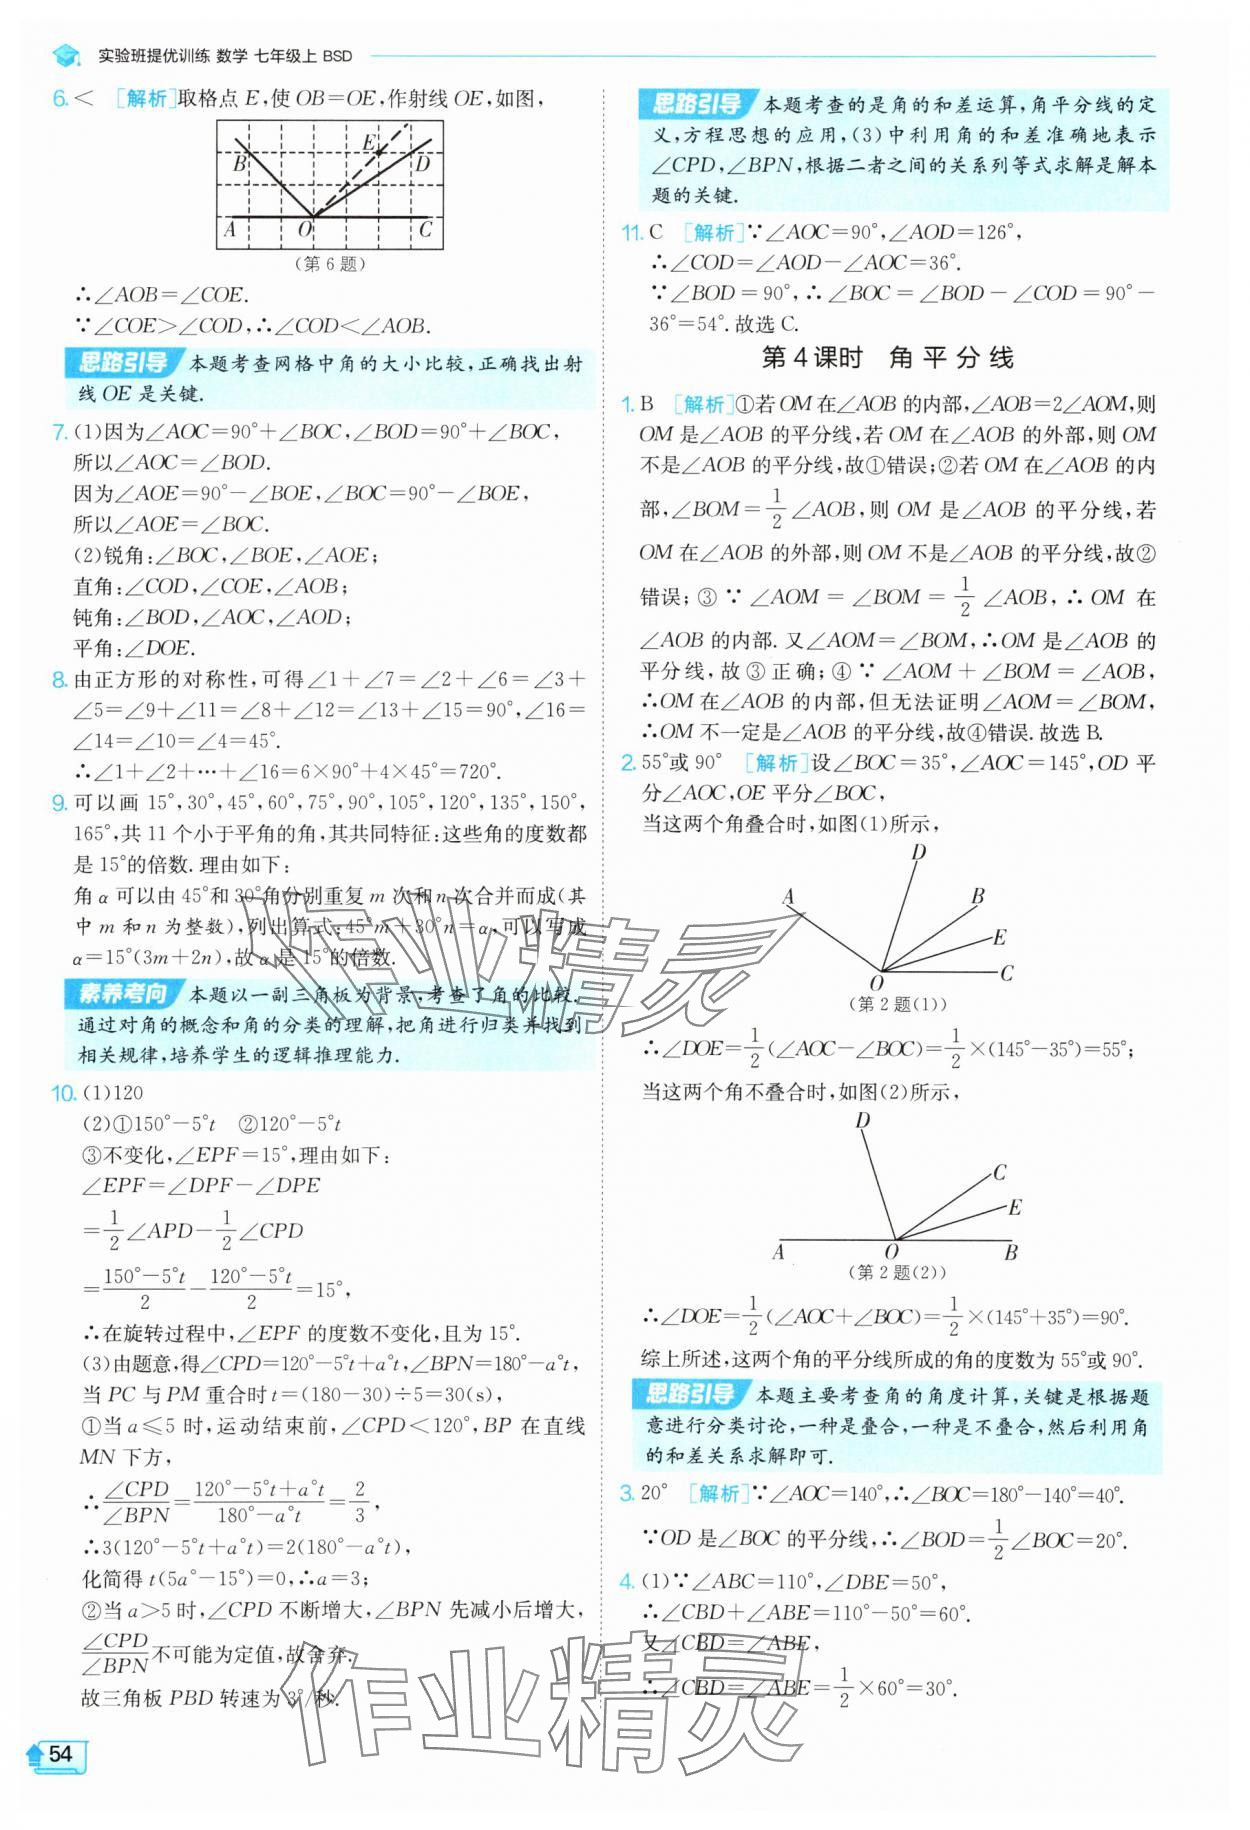 实验班提优训练 数学 七年级上 BSD
6. < [解析]取格点 E,使 OB=OE,作射线 OE,如图,
B E D
A O C
(第 6 题)
∴∠AOB=∠COE.
∵∠COE>∠COD,∴∠COD<∠AOB.
思路引导 本题考查网格中角的大小比较,正确找出射
线 OE 是关键.
7. (1)因为∠AOC=90°+∠BOC,∠BOD=90°+∠BOC,
所以∠AOC=∠BOD.
因为∠AOE=90°-∠BOE,∠BOC=90°-∠BOE,
所以∠AOE=∠BOC.
(2)锐角:∠BOC,∠BOE,∠AOE;
直角:∠COD,∠COE,∠AOB;
钝角:∠BOD,∠AOC,∠AOD;
平角:∠DOE.
8. 由正方形的对称性,可得∠1+∠7=∠2+∠6=∠3+
∠5=∠9+∠11=∠8+∠12=∠13+∠15=90°,∠16=
∠14=∠10=∠4=45°.
∴∠1+∠2+···+∠16=6×90°+4×45°=720°.
9. 可以画 15°,30°,45°,60°,75°,90°,105°,120°,135°,150°,
165°,共 11 个小于平角的角,其共同特征:这些角的度数都
是 15°的倍数.理由如下:
角 α 可以由 45°和 30°角分别重复 m 次和 n 次合并而成(其
中 m 和 n 为整数),列出算式:45°m+30°n=α,可以写成
α=15°(3m+2n),故 α 是 15°的倍数.
素养考向 本题以一副三角板为背景,考查了角的比较.
通过对角的概念和角的分类的理解,把角进行归类并找到
相关规律,培养学生的逻辑推理能力.
10. (1)120
(2)①150°-5°t ②120°-5°t
③不变化,∠EPF=15°,理由如下:
∠EPF=∠DPF-∠DPE
=1/2∠APD-1/2∠CPD
=(150°-5°t)/2-(120°-5°t)/2=15°,
∴在旋转过程中,∠EPF 的度数不变化,且为 15°.
(3)由题意,得∠CPD=120°-5°t+a°t,∠BPN=180°-a°t,
当 PC 与 PM 重合时 t=(180-30)÷5=30(s),
①当 a≤5 时,运动结束前,∠CPD<120°,BP 在直线
MN 下方,
∴∠CPD/∠BPN=(120°-5°t+a°t)/(180°-a°t)=2/3,
∴3(120°-5°t+a°t)=2(180°-a°t),
化简得 t(5a°-15°)=0,∴a=3;
②当 a>5 时,∠CPD 不断增大,∠BPN 先减小后增大,
∠CPD/∠BPN不可能为定值,故舍弃.
故三角板 PBD 转速为 3°/秒.
54
思路引导 本题考查的是角的和差运算,角平分线的定
义,方程思想的应用,(3)中利用角的和差准确地表示
∠CPD,∠BPN,根据二者之间的关系列等式求解是解本
题的关键.
11. C [解析]∵∠AOC=90°,∠AOD=126°,
∴∠COD=∠AOD-∠AOC=36°.
∵∠BOD=90°,∴∠BOC=∠BOD-∠COD=90°-
36°=54°.故选 C.
第 4 课时 角平分线
1. B [解析]①若 OM 在∠AOB 的内部,∠AOB=2∠AOM,则
OM 是∠AOB 的平分线,若 OM 在∠AOB 的外部,则 OM
不是∠AOB 的平分线,故①错误;②若 OM 在∠AOB 的内
部,∠BOM=1/2∠AOB,则 OM 是∠AOB 的平分线,若
OM 在∠AOB 的外部,则 OM 不是∠AOB 的平分线,故②
错误;③∵∠AOM=∠BOM=1/2∠AOB,∴OM 在
∠AOB 的内部.又∠AOM=∠BOM,∴OM 是∠AOB 的
平分线,故③正确;④∵∠AOM+∠BOM=∠AOB,
∴OM 在∠AOB 的内部,但无法证明∠AOM=∠BOM,
∴OM 不一定是∠AOB 的平分线,故④错误.故选 B.
2. 55°或 90° [解析]设∠BOC=35°,∠AOC=145°,OD 平
分∠AOC,OE 平分∠BOC,
当这两个角叠合时,如图(1)所示,
D
A B
E
O C
(第 2 题(1))
∴∠DOE=1/2(∠AOC-∠BOC)=1/2×(145°-35°)=55°;
当这两个角不叠合时,如图(2)所示,
D
C
E
A O B
(第 2 题(2))
∴∠DOE=1/2(∠AOC+∠BOC)=1/2×(145°+35°)=90°.
综上所述,这两个角的平分线所成的角的度数为 55°或 90°.
思路引导 本题主要考查角的角度计算,关键是根据题
意进行分类讨论,一种是叠合,一种是不叠合,然后利用角
的和差关系求解即可.
3. 20° [解析]∵∠AOC=140°,∴∠BOC=180°-140°=40°.
∵OD 是∠BOC 的平分线,∴∠BOD=1/2∠BOC=20°.
4. (1)∵∠ABC=110°,∠DBE=50°,
∴∠CBD+∠ABE=110°-50°=60°.
又∠CBD=∠ABE,
∴∠CBD=∠ABE=1/2×60°=30°.
作业精灵
作业精灵